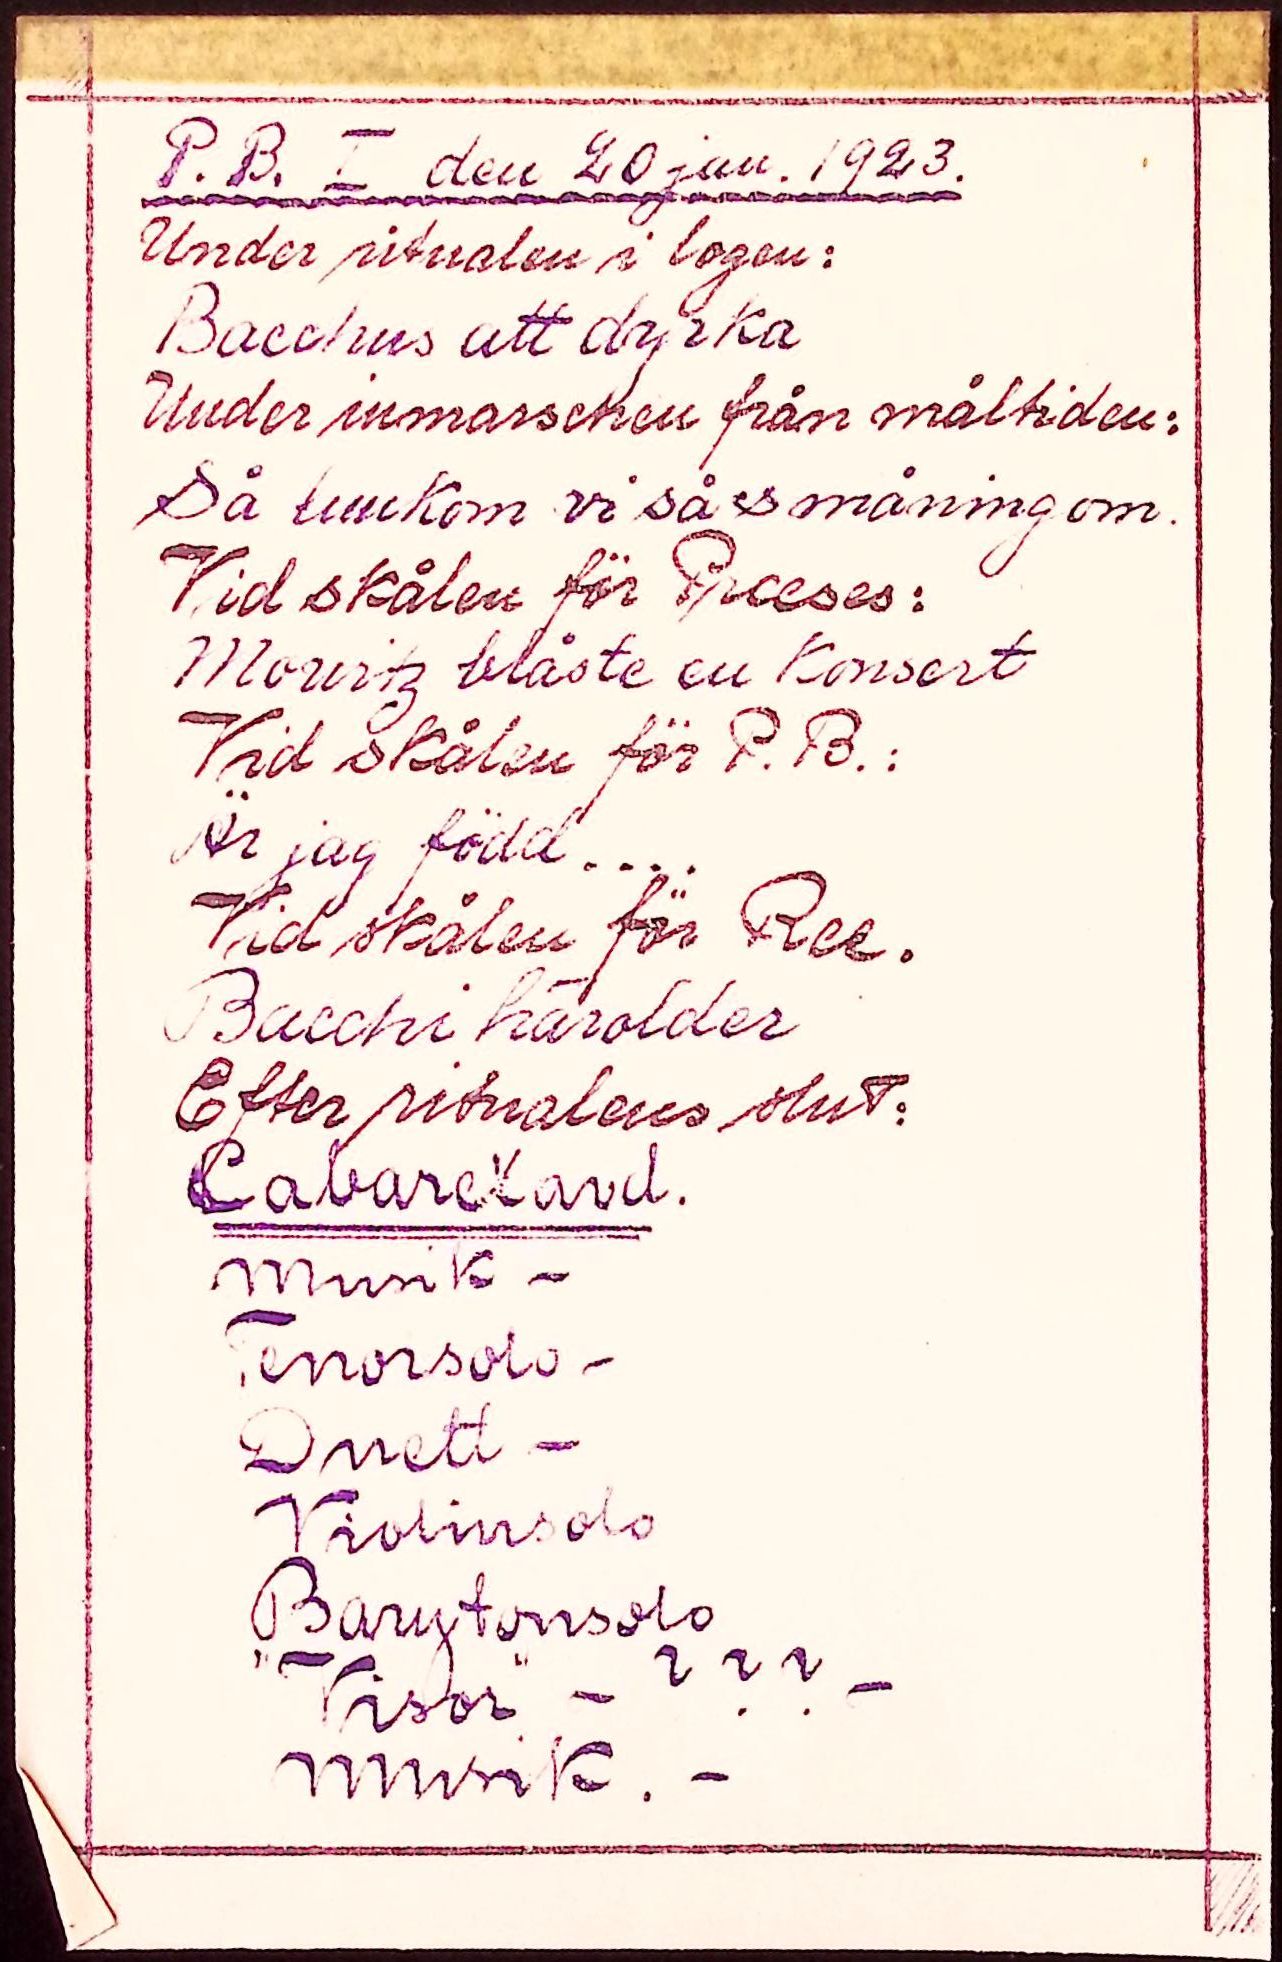 P. B. I den 20 jan. 1923.
Under ritualen i logen:
Bacchus att dyrka
Under inmarschen från måltiden:
Så lunkom vi så småningom.
Vid skålen för Præses:
Mouritz blåste en Konsert
Vid skålen för P. B.:
Är jag född....
Vid skålen för Rec.
Bacchi härolder
Efter ritualens slut:
Cabaretavd.
Musik –
Tenorsolo –
Duett –
Violinsolo
Barytonsolo
"Visor" – ??? –
Musik. –